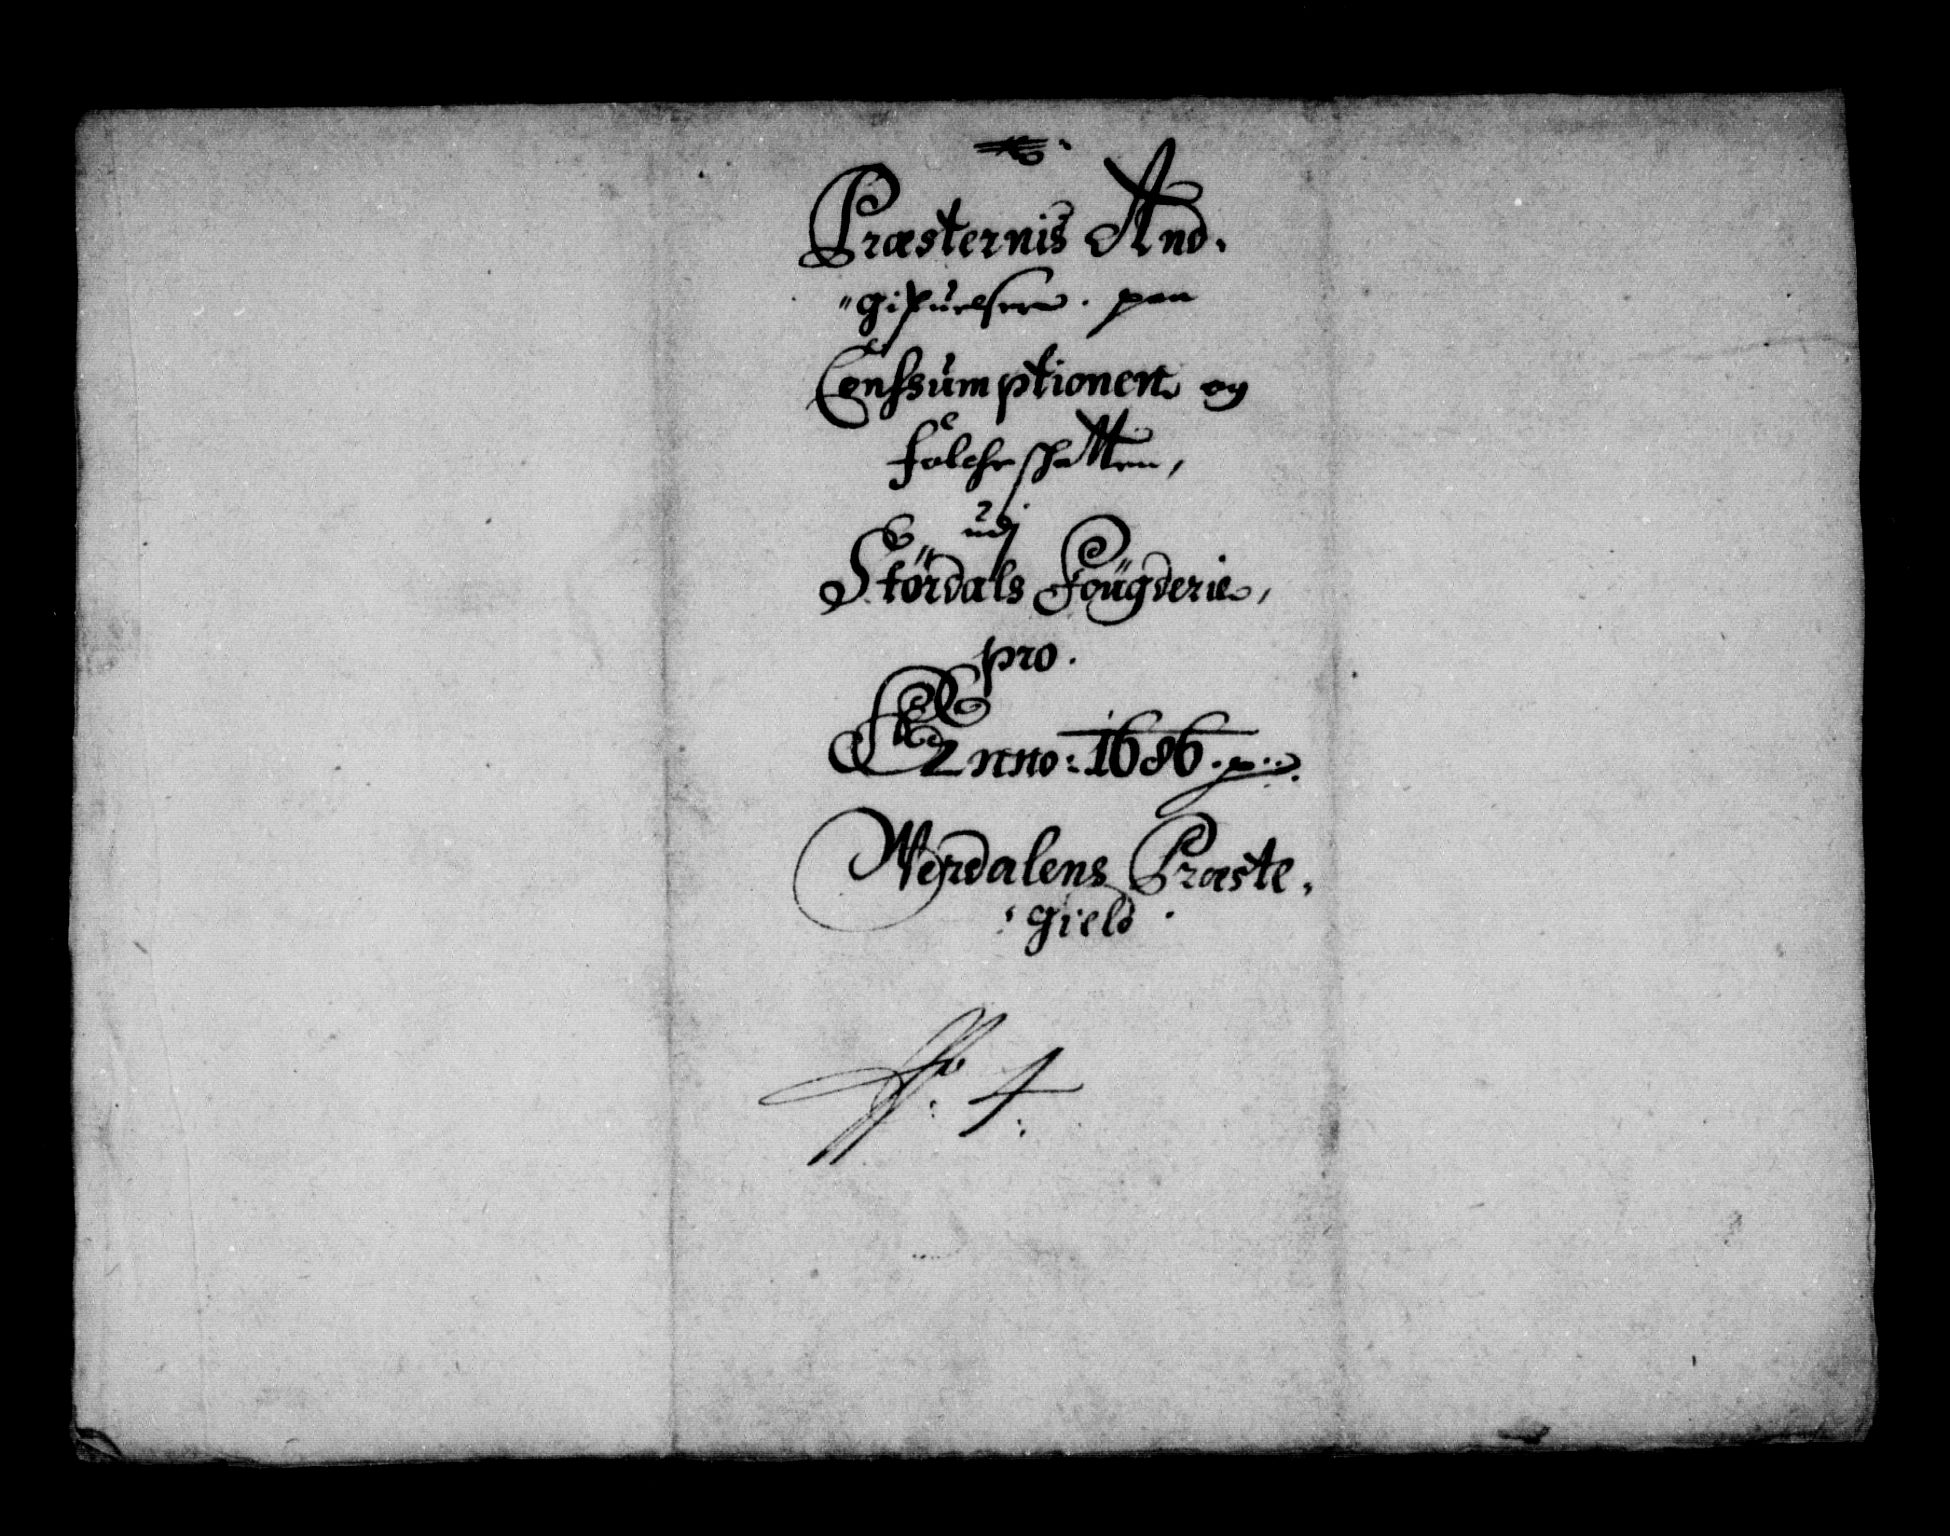 Præsternis And.
"gifuelser. paa
Conssumptionen og
folcheschatten,
udj
Størdals Fougderie,
pro.
Anno: 1686. p..
Werdalens Præste.
gield.
No. 4.